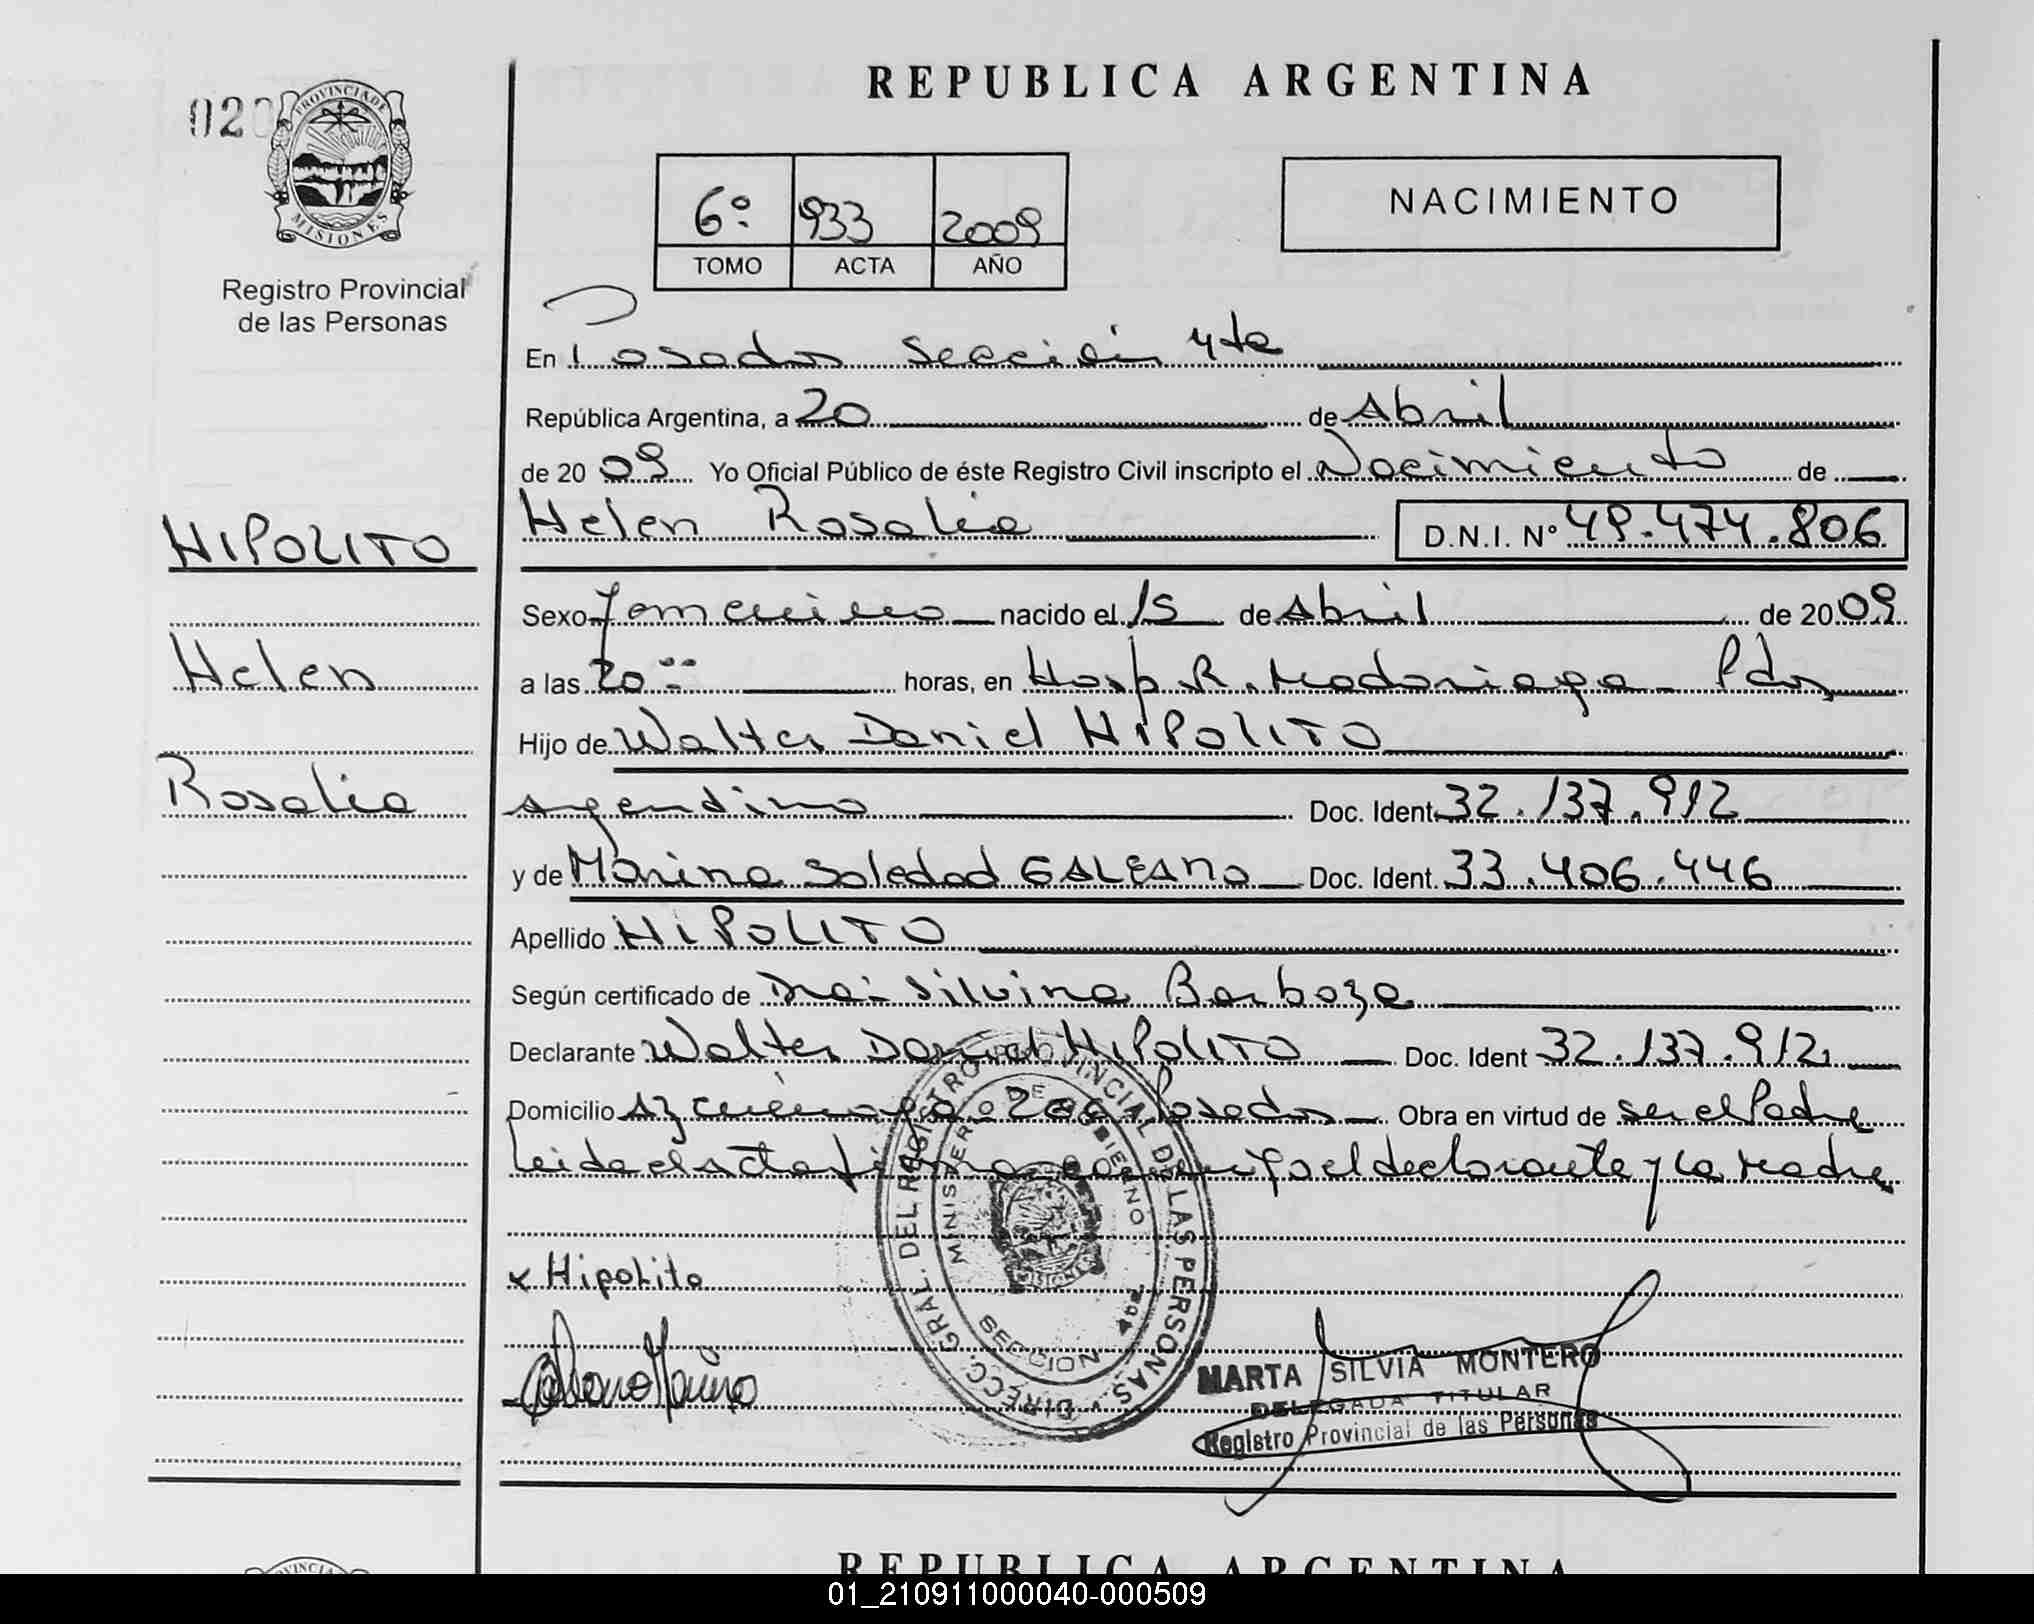 REPUBLICA ARGENTINA
020
PROVINCIA DE
MISIONES
Registro Provincial
de las Personas
6º 933 2009
TOMO ACTA AÑO
NACIMIENTO
En Posadas Sección 4ta
República Argentina, a 20 de Abril
de 2009 Yo Oficial Público de éste Registro Civil inscripto el Nacimiento de
HIPOLITO
Helen Rosalia D.N.I. Nº 49.474.806
Sexo femenino nacido el 15 de Abril de 2009
Helen
a las 20:00 horas, en Hosp. R. Madariaga Pdas
Hijo de Walter Daniel HIPOLITO
Rosalia
Argentino Doc. Ident. 32.137.912
y de Marina Soledad GALEANO Doc. Ident. 33.406.446
Apellido HIPOLITO
Según certificado de Dra. Silvina Barboza
Declarante Walter Daniel HIPOLITO Doc. Ident 32.137.912
Domicilio Posadas Obra en virtud de ser el Padre
Leida el acta firma conmigo el declarante y la Madre
x Hipolito
DIRECC. GRAL. DEL REGISTRO PROVINCIAL DE LAS PERSONAS
MINISTERIO DE GOBIERNO
MISIONES
SECCION 4ta
MARTA SILVIA MONTERO
DELEGADA TITULAR
Registro Provincial de las Personas
REPUBLICA ARGENTINA
01_210911000040-000509